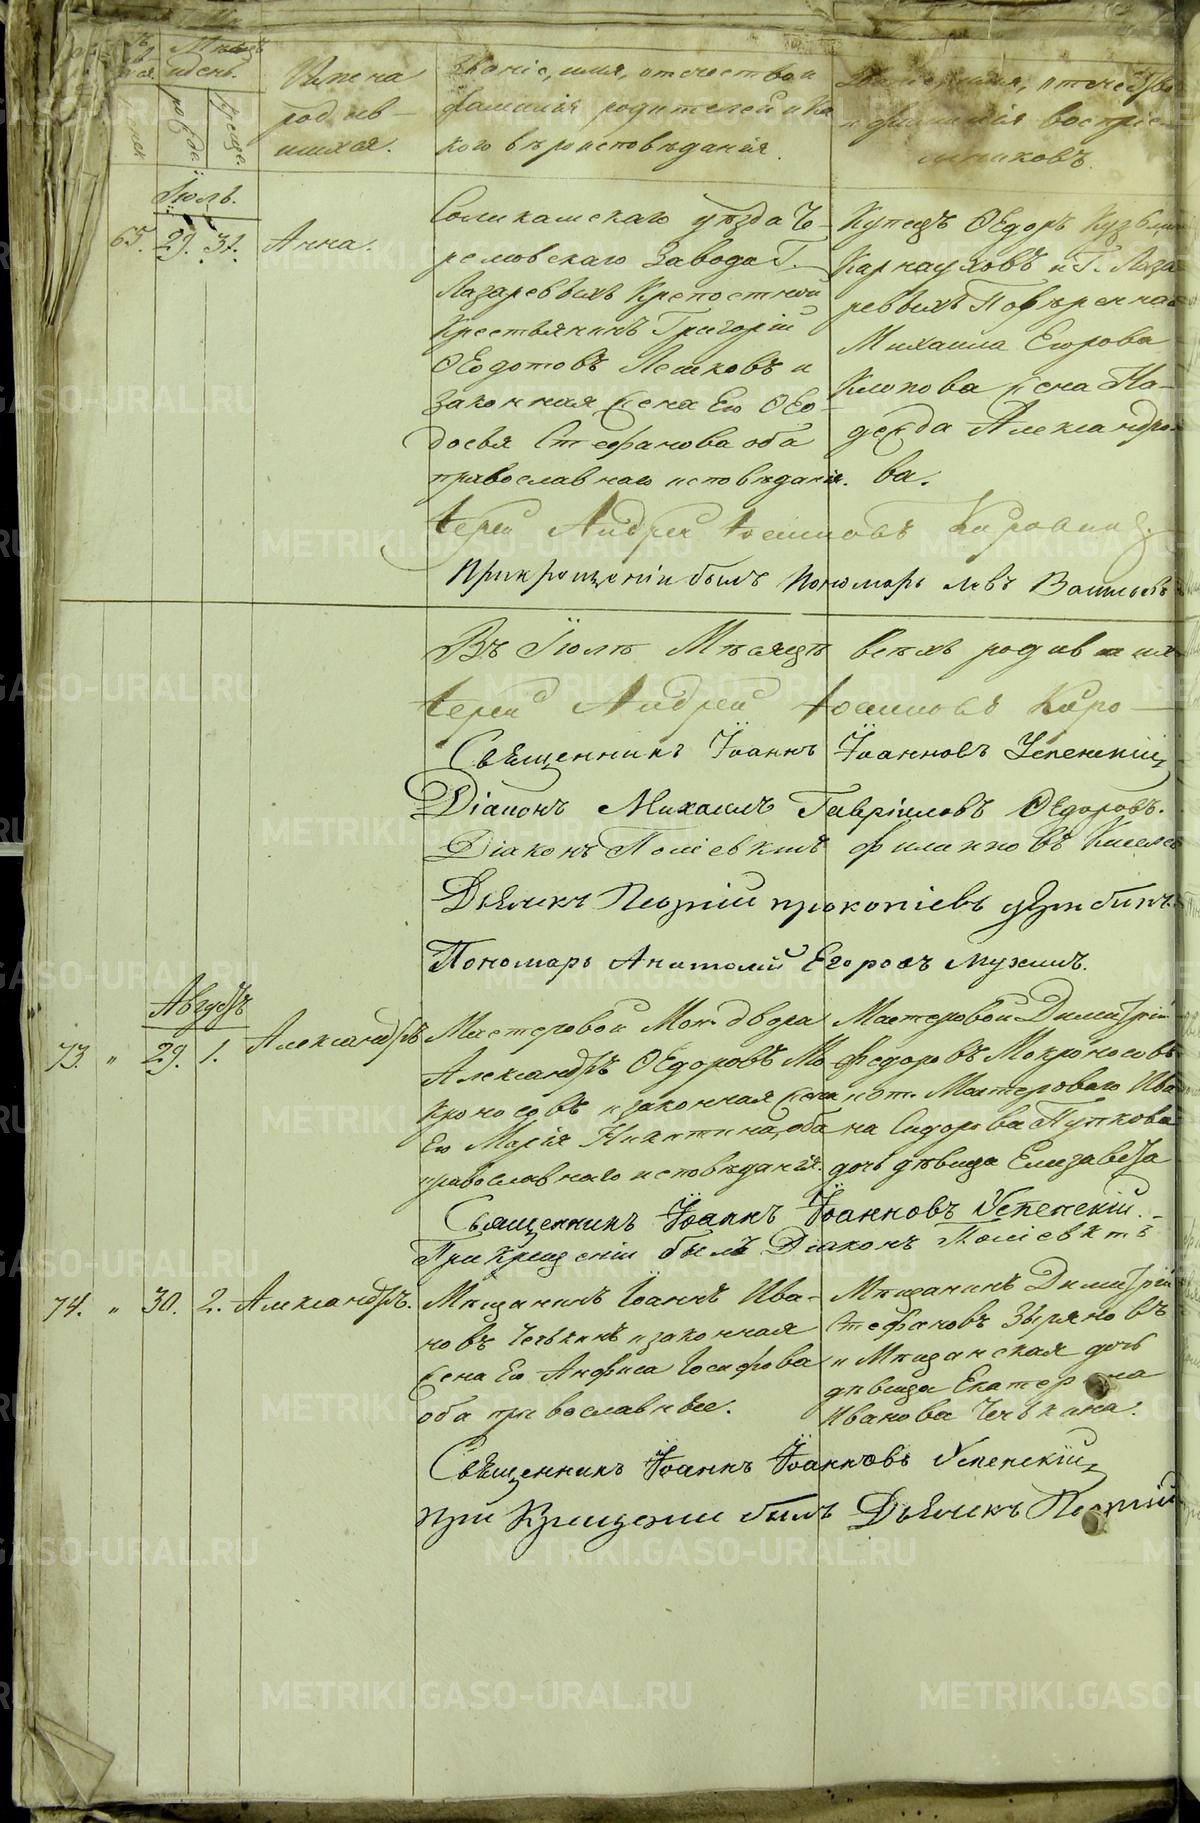 Мѣсяцъ
и день.
рожде
креще
Имена
родив-
шихся.
Званіе, имя, отчество и
фамилія родителей и ка
кого вѣроисповѣданія.
Званіе, имя, отчество
и фамилія воспріе-
мниковъ.
Іюль.
65. 29. 31. Анна.
Соликамскаго уѣзда Ч-
рмовскаго Завода Г.
Лазаревыхъ Крепостной
Крестьянинъ Григорій
Ѳеодотовъ Пешковъ и
Законная жена Его Ѳео-
досья Стефанова оба
православнаго исповѣданія.
Купецъ Ѳедоръ Кузьмин
Карнауховъ и Г. Лаза
ревыхъ Повѣреннаго
Михаила Егорова
Клопова жена На-
дежда Александро-
ва.
Іерей Андрей Іоанновъ
При крещеніи былъ Пономарь Левъ Васильевъ
Въ Іюлѣ Мѣсяцѣ всѣхъ родивших
Іерей Андрей Іоанновъ
Священникъ Іоаннъ Іоанновъ Успенскій
Діаконъ Михаилъ Гавріиловъ Ѳедоровъ.
Діаконъ Поліевктъ Филиппов
Дьячекъ Георгій Прокопіевъ
Пономарь Анатолій Егоровъ Мухинъ.
Августъ
73. „ 29. 1. Александръ
Мастеровой Мон. двора
Александръ Ѳедоровъ Мо
кроносовъ и законная жена
Его Марія Никитина, оба
православнаго исповѣданія.
Мастеровой Димитрій
Федоровъ Мокроносовъ
и от. Мастероваго Ива
на Сидорова Пупкова
дочь дѣвица Елизавета
Священникъ Іоаннъ Іоанновъ Успенскій.
При крещеніи былъ Діаконъ Поліевктъ
74. „ 30. 2. Александръ.
Мѣщанинъ Іоаннъ Ива-
новъ Чечькинъ и законная
жена Его Анфиса Іосифова
оба православные.
Мѣщанинъ Димитрій
Стефановъ Зыряновъ
и Мѣщанская дочь
дѣвица Екатерина
Иванова Чечькина.
Священникъ Іоаннъ Іоанновъ Успенскій
При Крещеніи былъ Дьячекъ Георгій